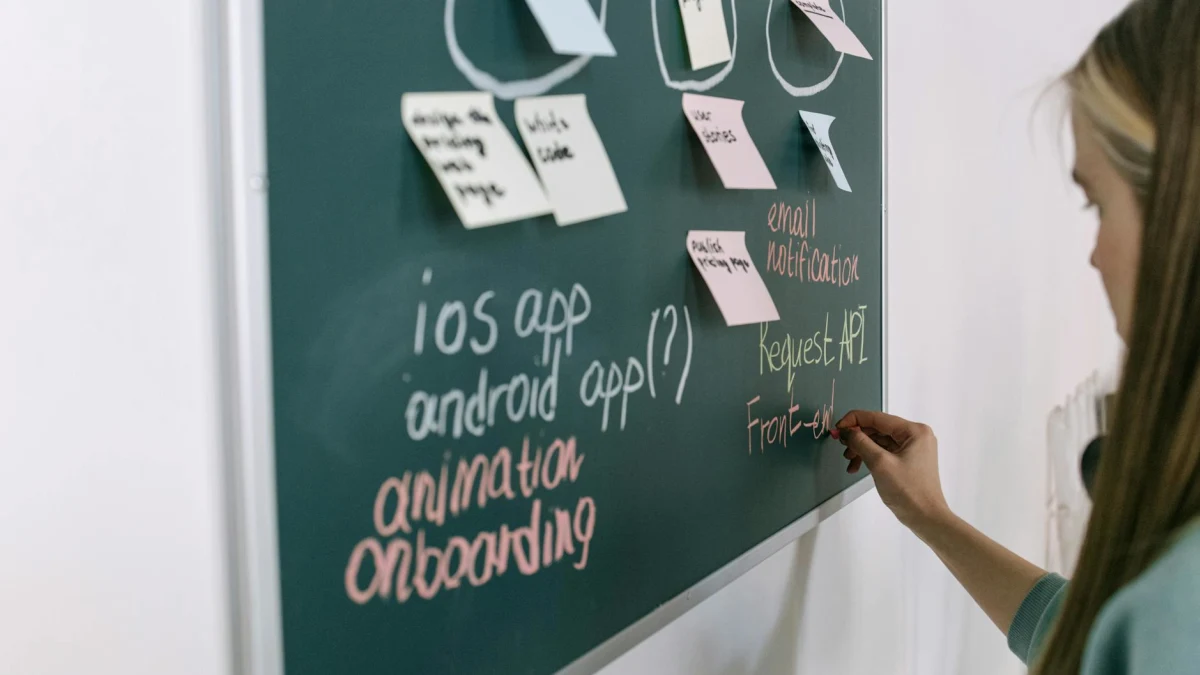 design the
pricing
web
page
write
code
user
stories
publish
pricing page
email
notification
Request API
Front-end
ios app
android app(?)
animation
onboarding